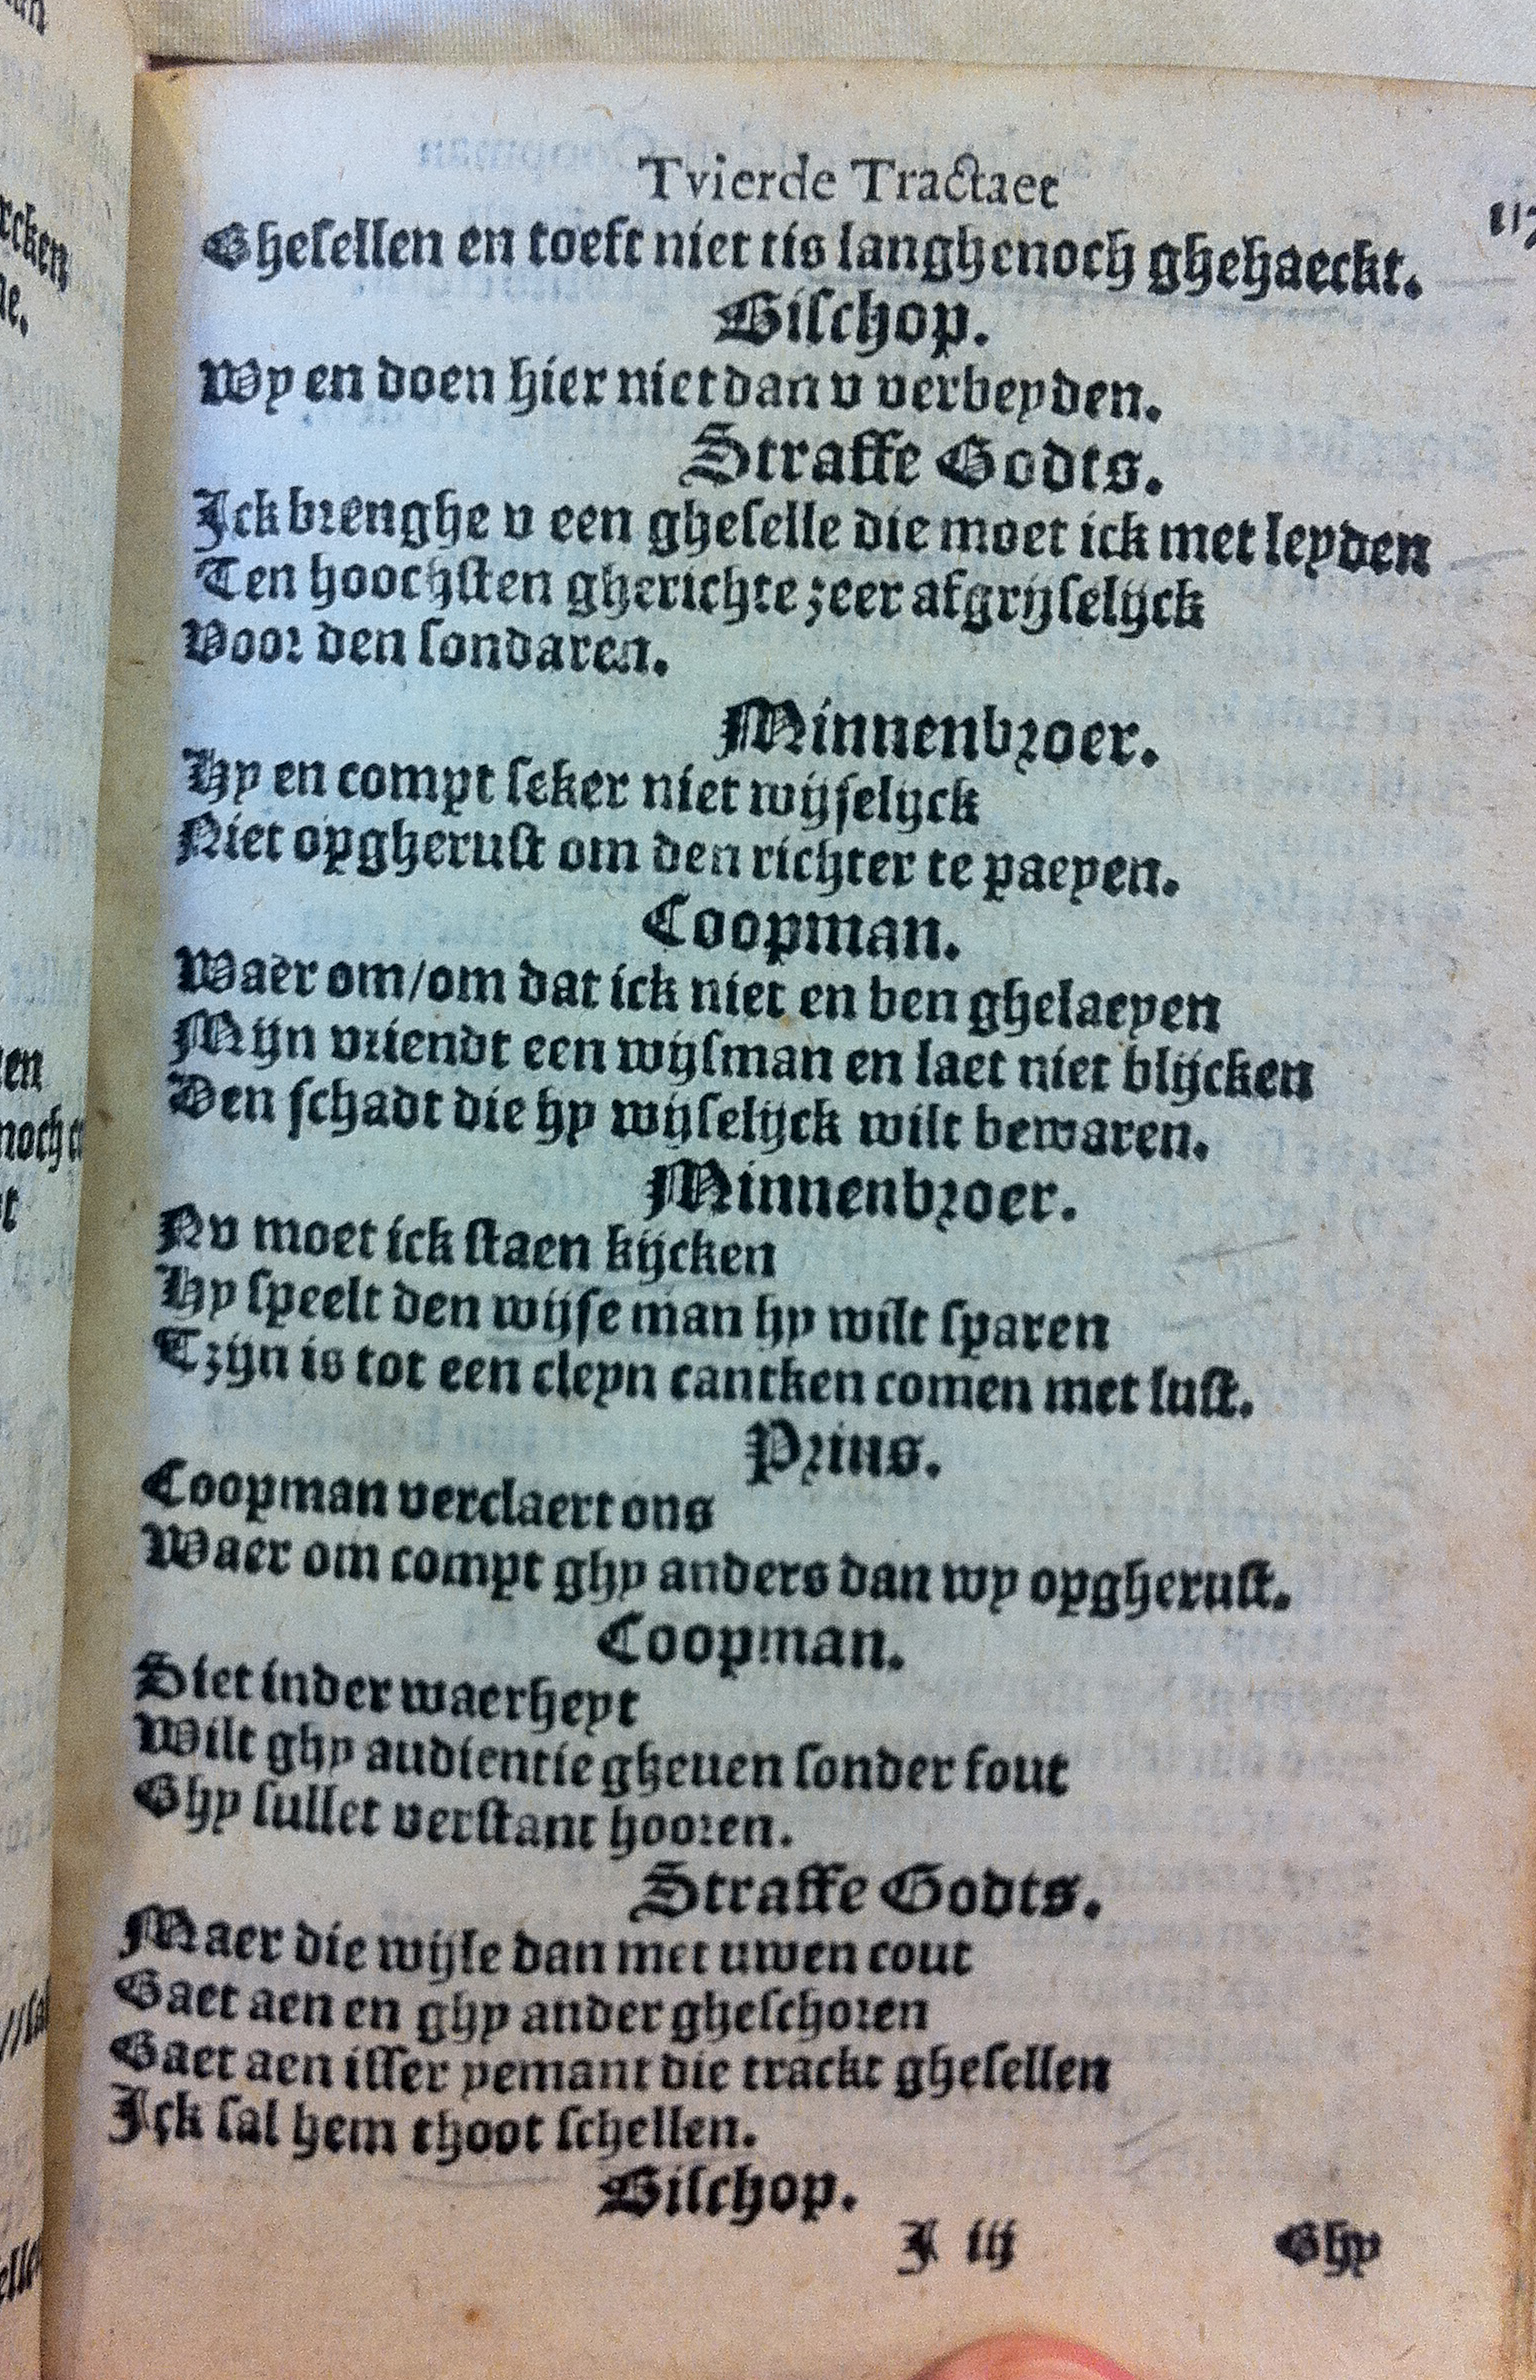 Tvierde Tractaet
Ghesellen en toeft niet tis langhenoch ghehaeckt.
Bisschop.
Wy en doen hier niet dan v verbeyden.
Straffe Godts.
Ick brenghe v een gheselle die moet ick met leyden
Ten hoochsten gherichte zeer afgrijselijck
Voor den sondaren.
Minnenbroer.
Hy en compt seker niet wijselijck
Niet opgherust om den richter te paeyen.
Coopman.
Waer om/om dat ick niet en ben ghelaeyen
Mijn vriendt een wijsman en laet niet blijcken
Den schadt die hy wijselijck wilt bewaren.
Minnenbroer.
Nv moet ick staen kijcken
Hy speelt den wijse man hy wilt sparen
Tzijn is tot een cleyn cantken comen met lust.
Prins.
Coopman verclaert ons
Waer om compt ghy anders dan wy opgherust.
Coopman.
Siet inder waerheyt
Wilt ghy audientie gheuen sonder fout
Ghy sullet verstant hooren.
Straffe Godts.
Maer die wijle dan met uwen cout
Gaet aen en ghy ander gheschoren
Gaet aen isser yemant die trackt ghesellen
Ick sal hem thoot schellen.
Bisschop.
I iij
Ghy